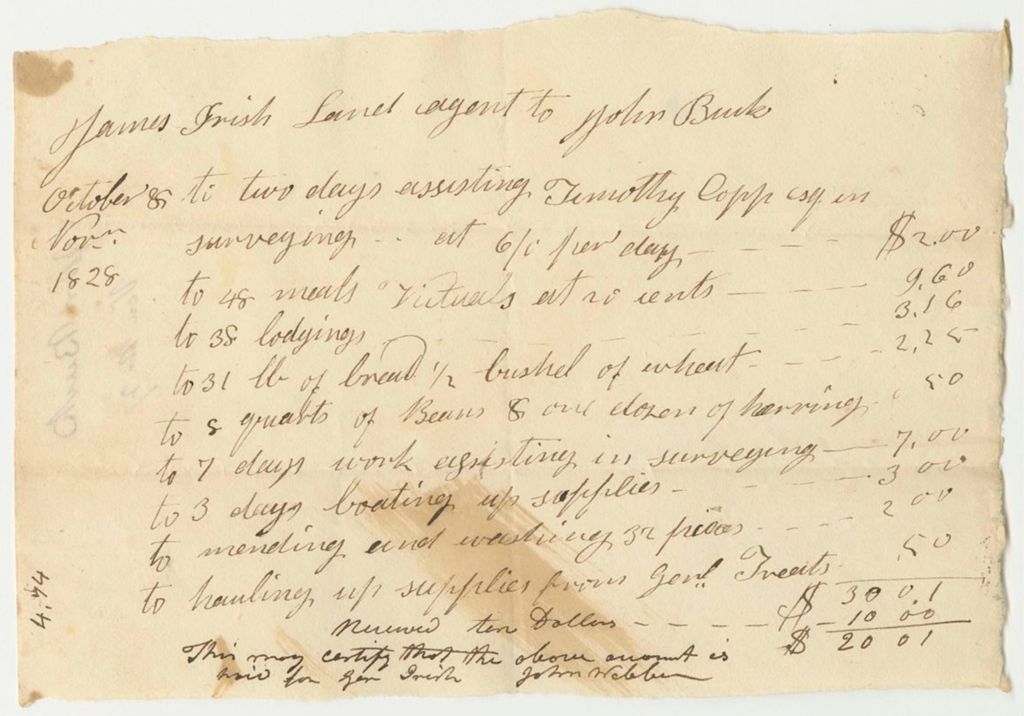 James Irish Land agent to John Buck
October & to two days assisting Timothy Copp esq in
Novr surveying - - at 6/ per day - - - - $2.00
1828
to 48 meals Victuals at 20 cents - - - - 9.60
to 38 lodgings - - - - - - 3.16
to 31 lb of bread 1/2 bushel of wheat - - - - 2,25
to 8 quarts of Beans & one dozen of herring 50
to 7 days work assisting in surveying - 7,00
to 3 days boating up supplies - - - - - 3 00
to mending and washing 32 pieces - - - - 2 00
to hauling up supplies from Genl Treats 50
$ 30 01
Received ten Dollars - - - - - $ - 10 00
$ 20 01
This may certify that the above amount is
for Gen Irish John Webber
4.74